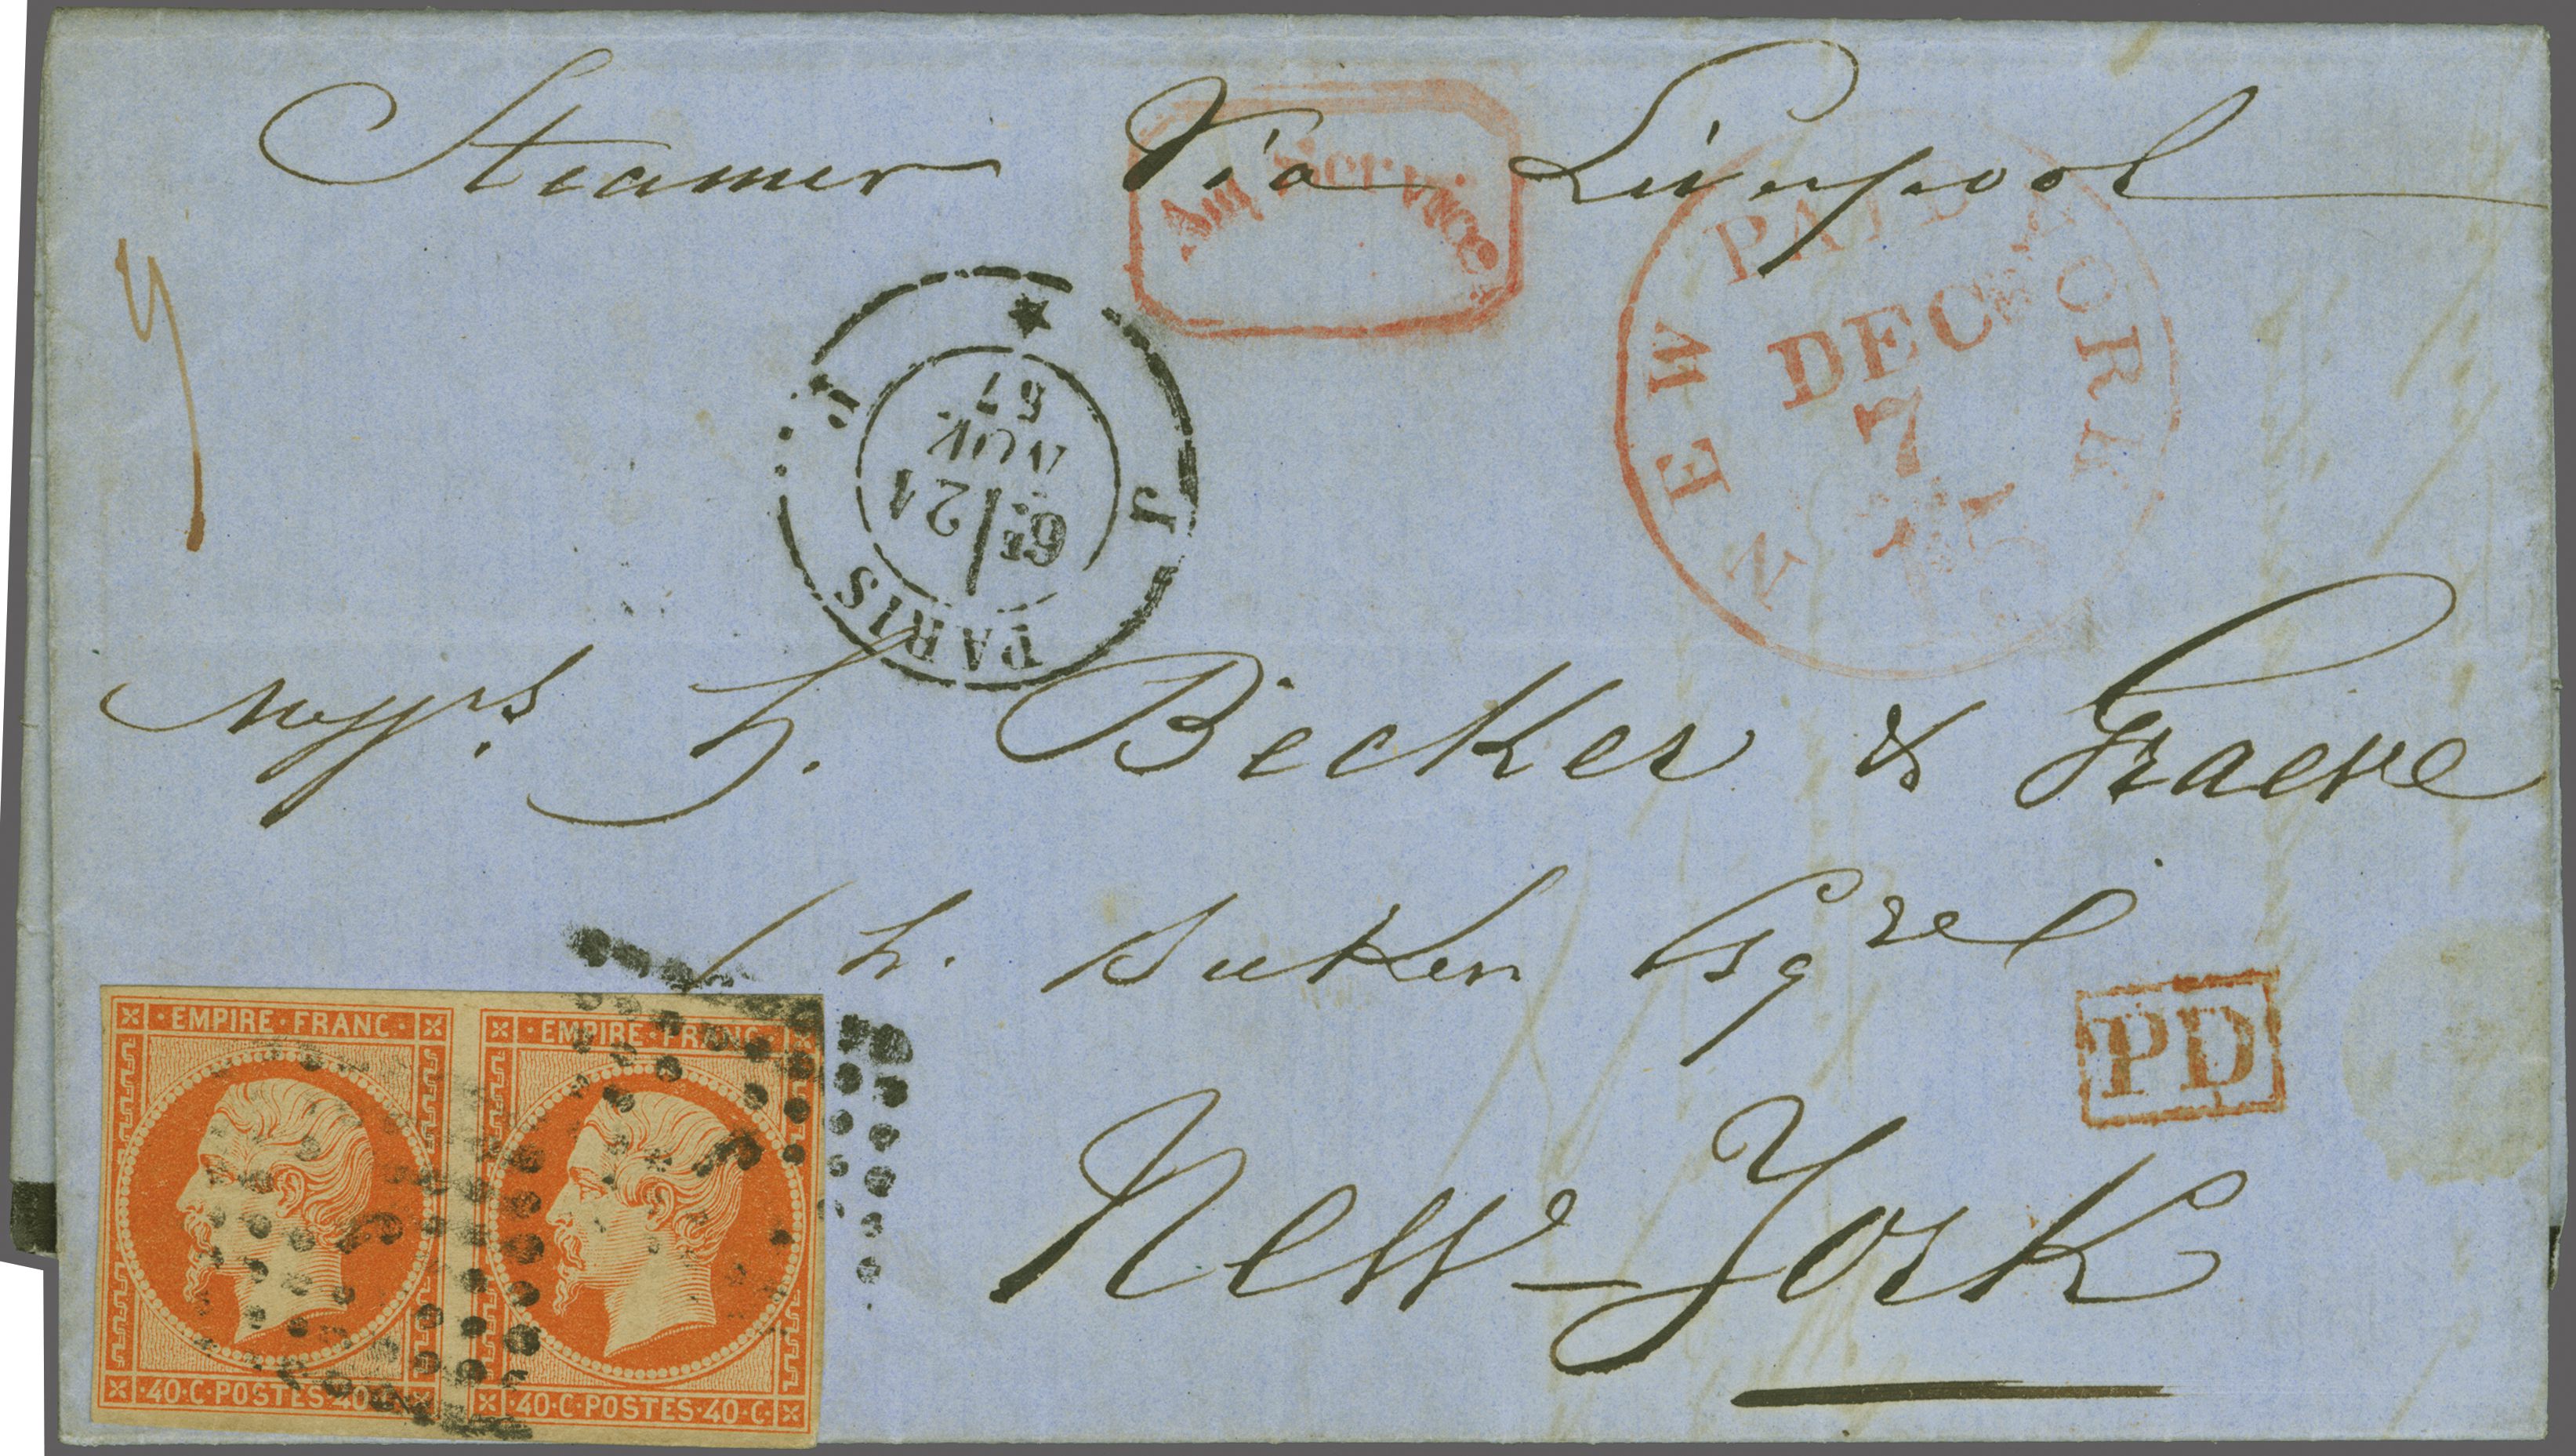 Steamer Via Liverpool
Am. Service.
NEW PAID YORK
DEC
7
J PARIS J
6E/21
NOV.
57
Messrs. H. Becker & Graeve
H. Becker Esqre
PD
New-York
EMPIRE · FRANC ·
40 · C · POSTES · 40 · C ·
EMPIRE · FRANC ·
40 · C · POSTES · 40 · C ·